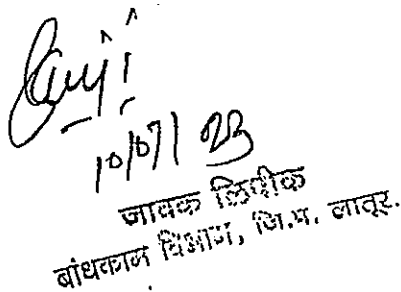 10/07/23
जावक लिपीक
बांधकाम विभाग, जि.प. लातूर.